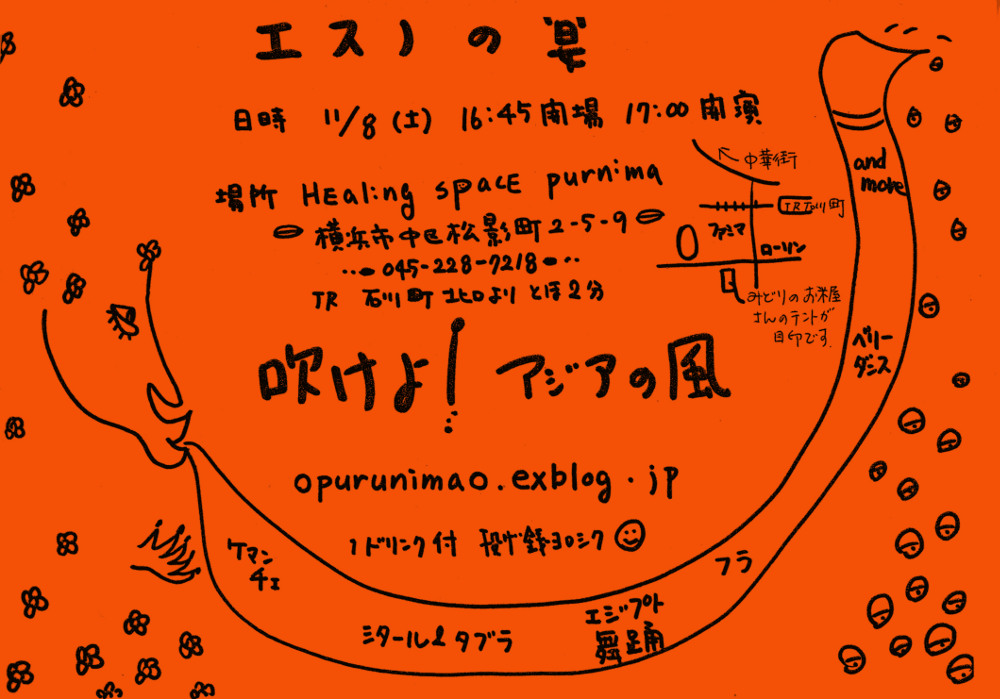 エスノの宴
日時 11/8(土) 16:45開場 17:00開演
場所 HEaling SpacE purnima
横浜市中区松影町2-5-9
045-228-7218
JR 石川町 北口より とほ2分
中華街
JR石川町
ファミマ
ローソン
みどりのお米屋
さんのテントが
目印です.
吹けよ! アジアの風
opurunimao.exblog.jp
1ドリンク付 投げ銭ヨロシク
ケマン
チェ
シタール&タブラ
エジプト
舞踊
フラ
ベリー
ダンス
and
more